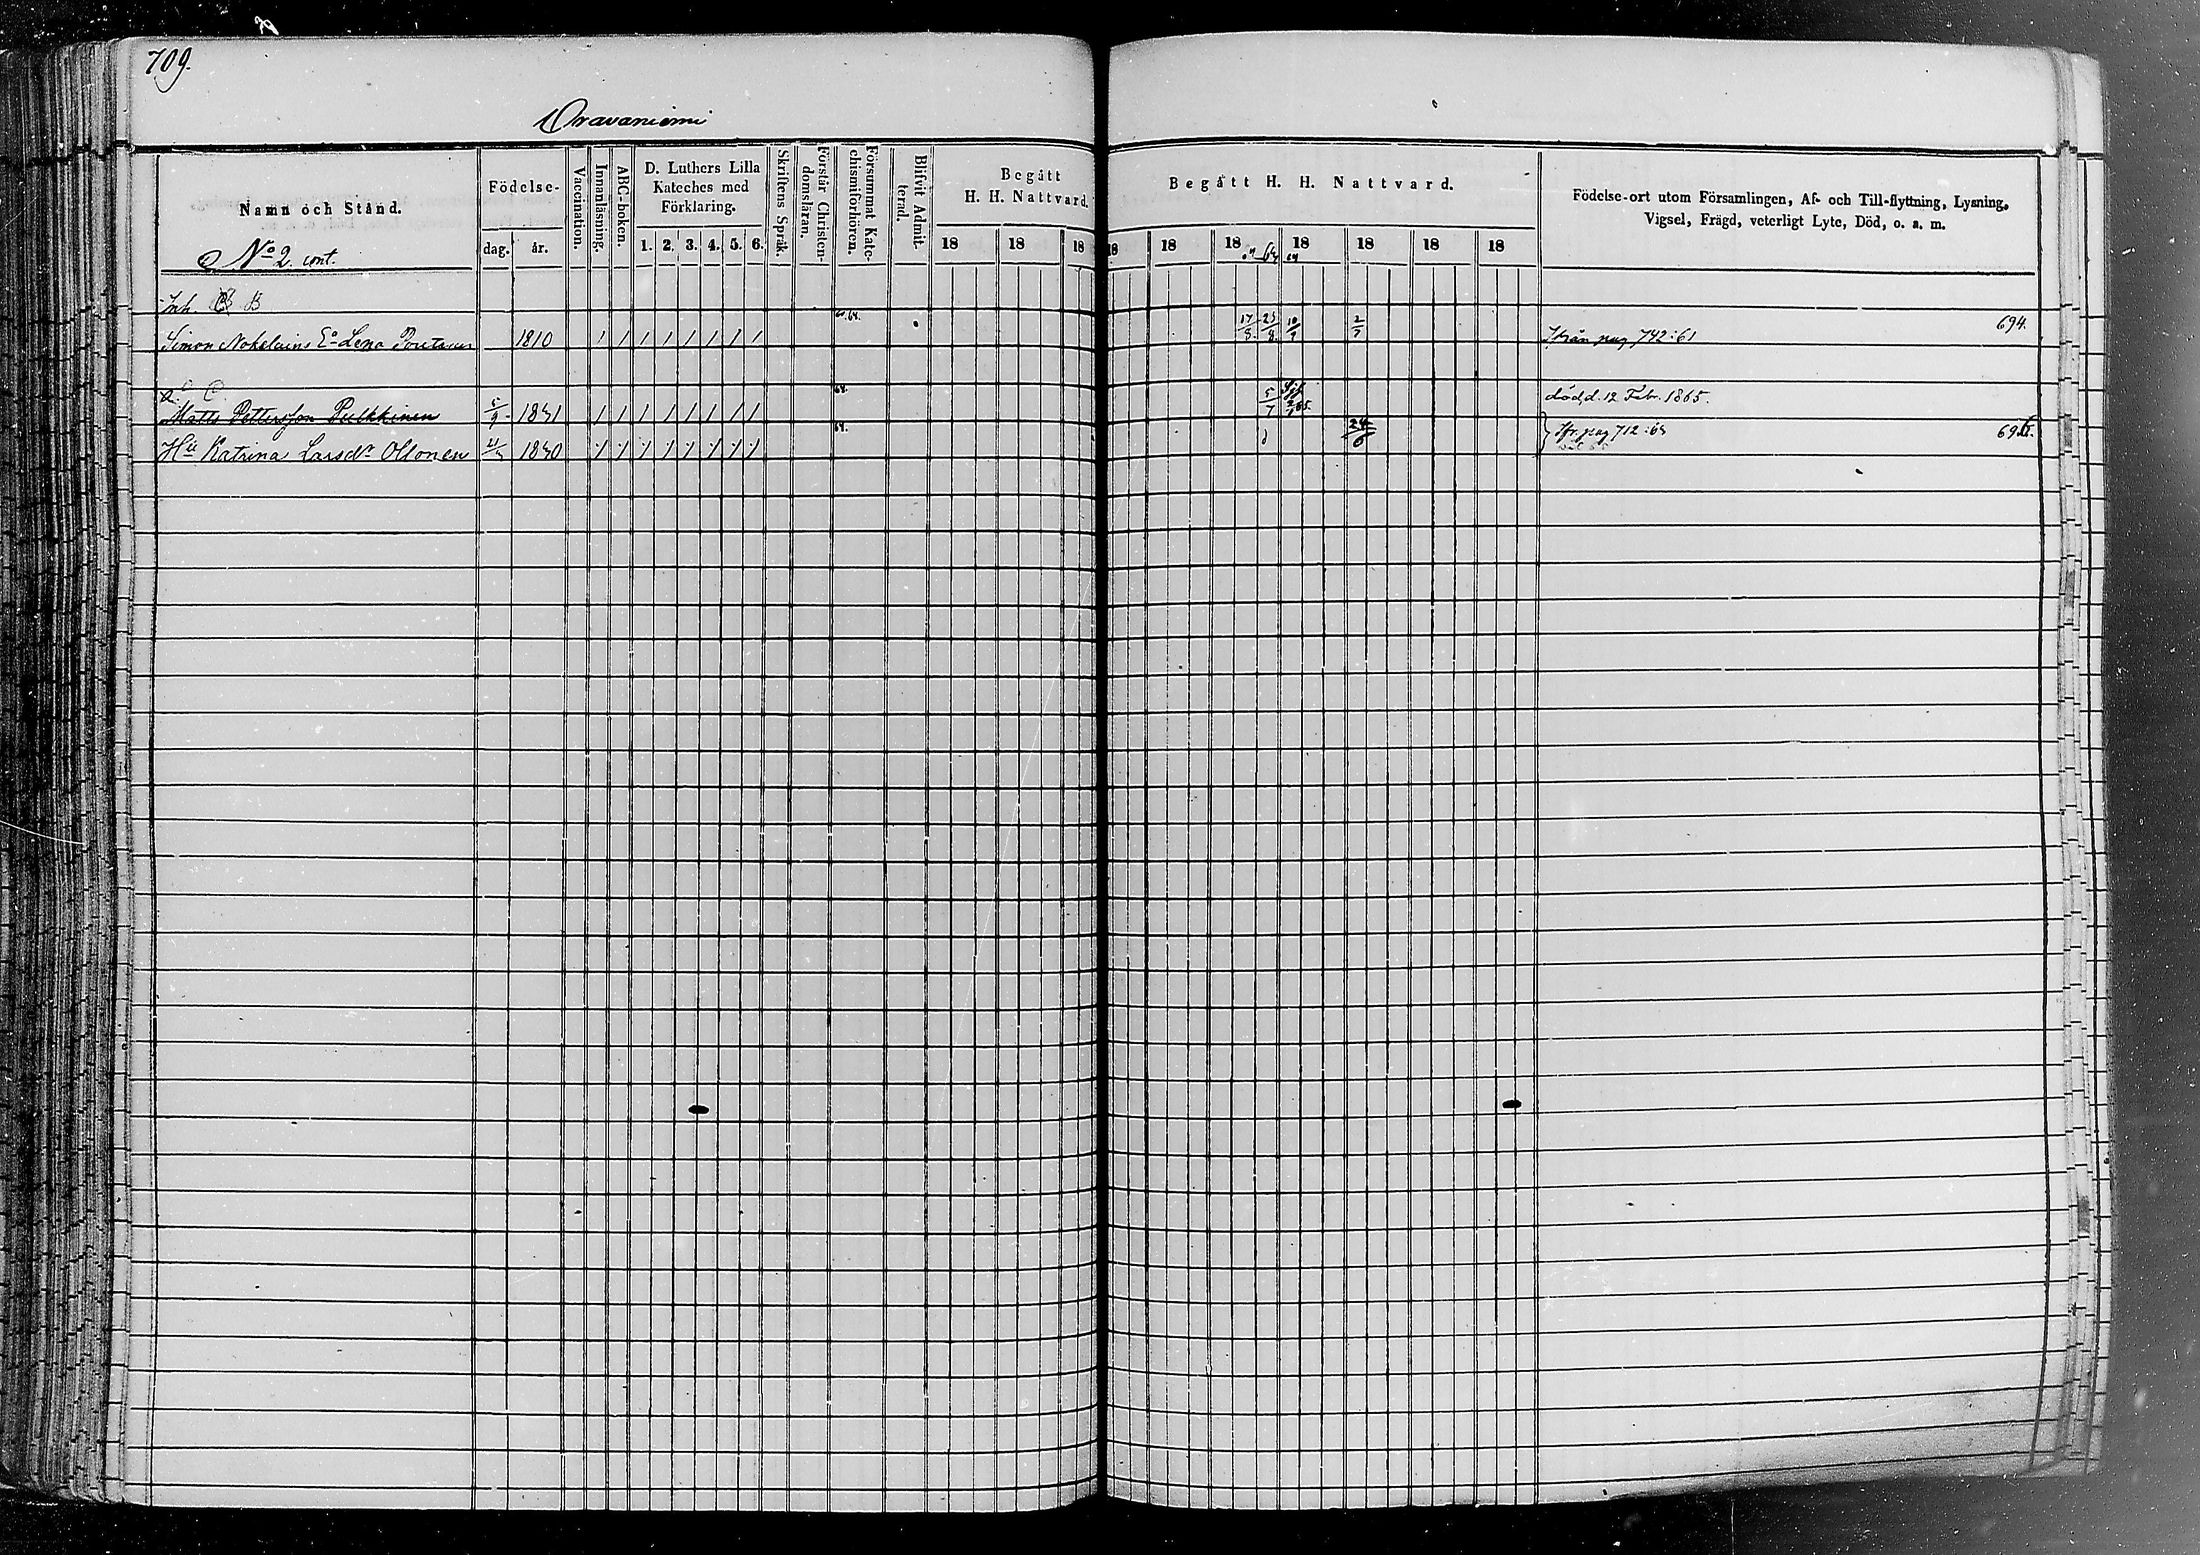 709.
Oravaniemi
Namn och Stånd.
Födelse-
dag.
år.
Vaccination.
Innanläsning.
ABC-boken.
D. Luthers Lilla
Kateches med
Förklaring.
1. 2. 3. 4. 5. 6.
Skriftens Språk.
Förstår Christen-
domsläran.
Försummat Kate-
chismiförhören.
Blifvit Admit-
terad.
Begått
H. H. Nattvard.
18 18 18
Begått H. H. Nattvard.
18 18 18 18 18 18 18
64
Födelse-ort utom Församlingen, Af- och Till-flyttning, Lysning,
Vigsel, Frägd, veterligt Lyte, Död, o. a. m.
No 2. cont.
Inh. B
Simon Nokelains Ea Lena 1810 / / / / / / / / 64. 17/8. 25/8. 10/9 2/7 från pag 742:61 694.
C.
Matts Pettersson Pulkkinen 5/9 1841 / / / / / / / / 64. 5/7 död d. 12 Febr. 1865.
Hu Katrina Larsdr Ollonen 1840 / / / / / / / / 64. 24/6 fr. pag 712:64